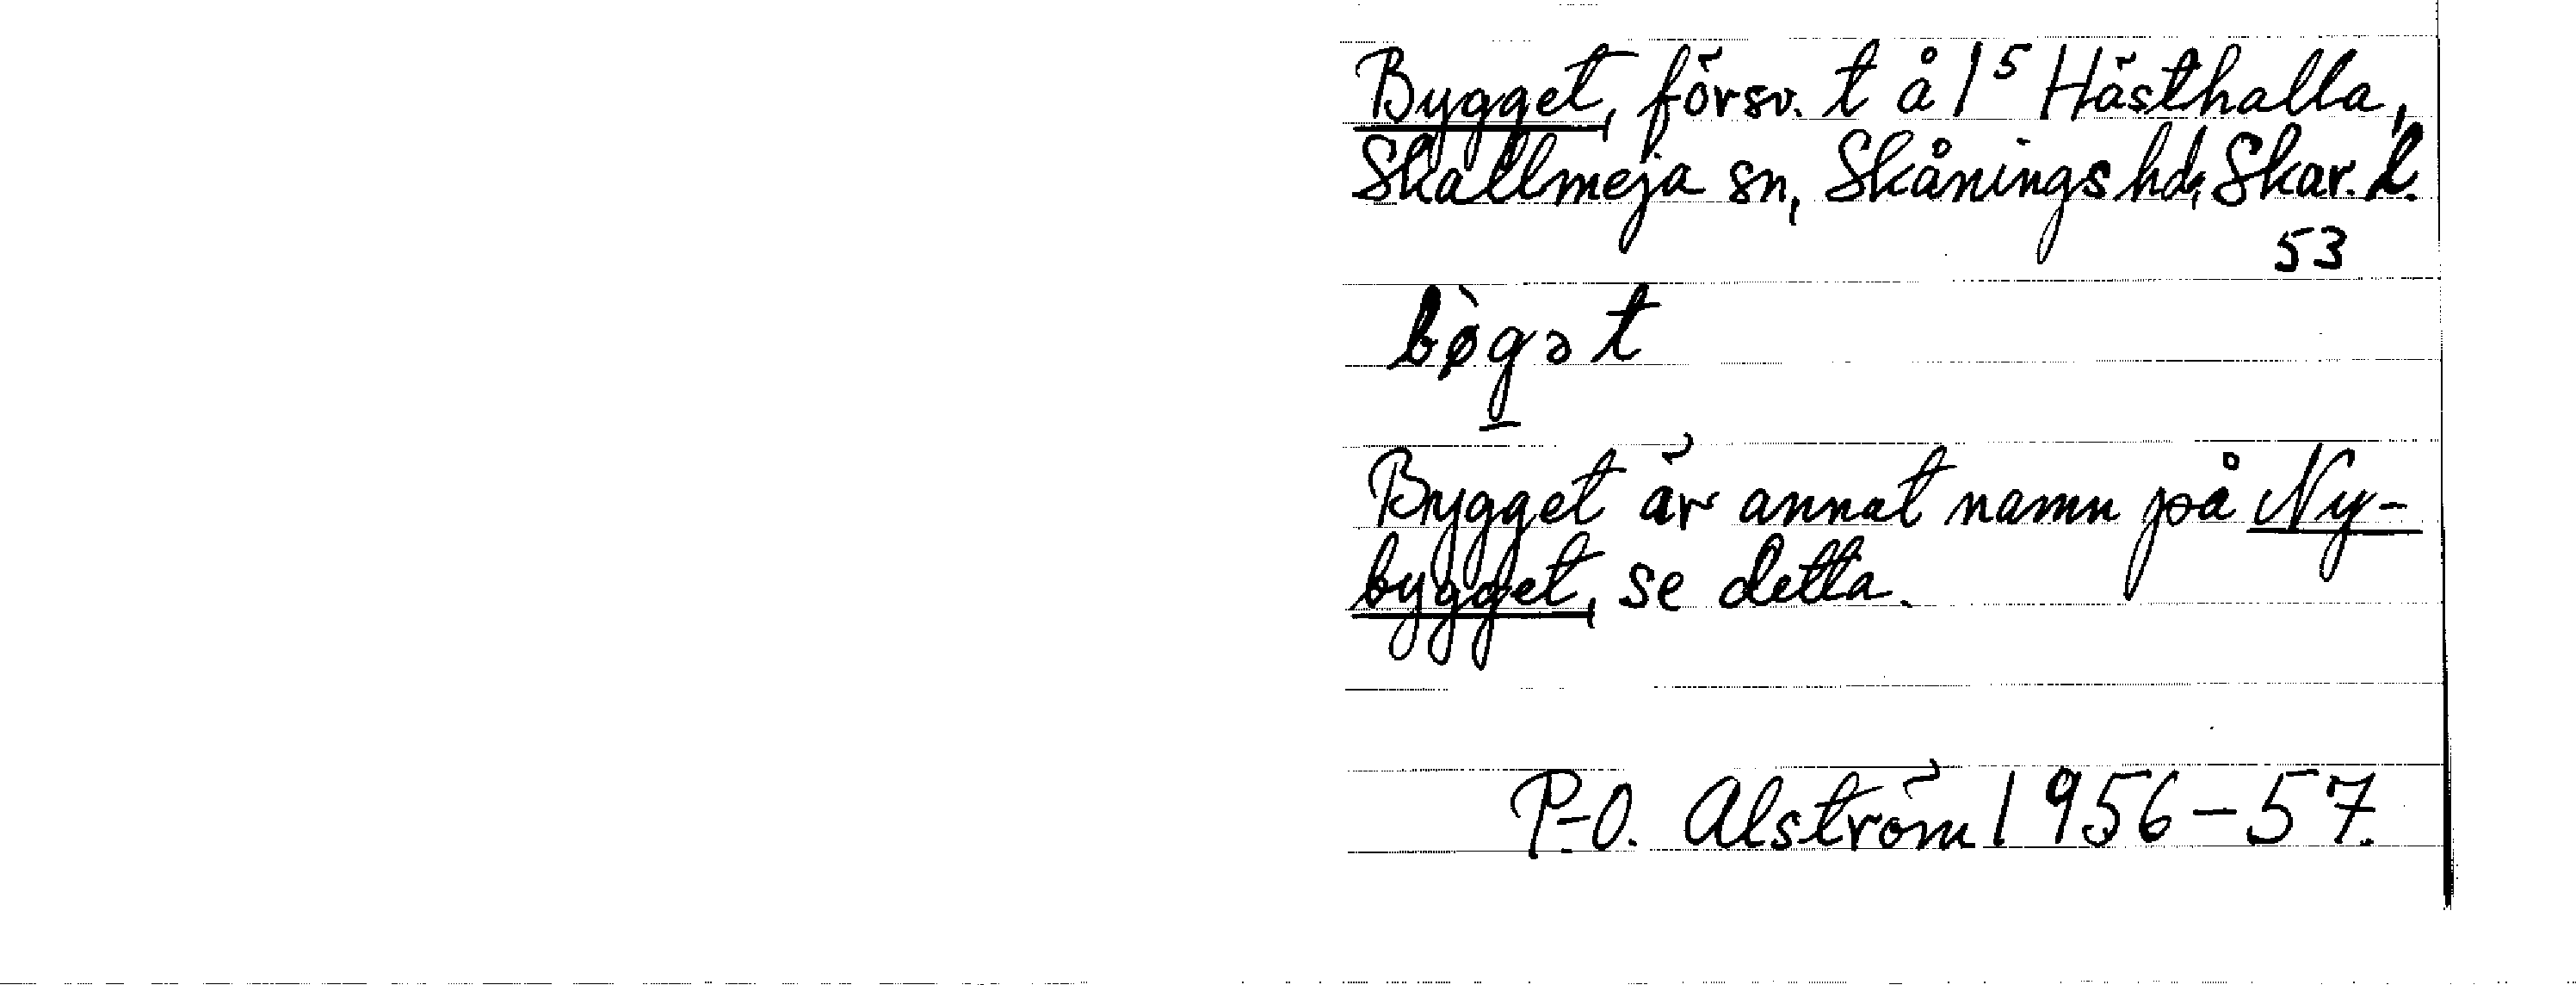 Bygget, försv. t å 1⁵ Hästhalla,
Skallmeja sn, Skånings hd, Skar. l.
53
bø̀gət
Bygget är annat namn på Ny-
bygget, se detta.
P-O. Alström 1956-57.